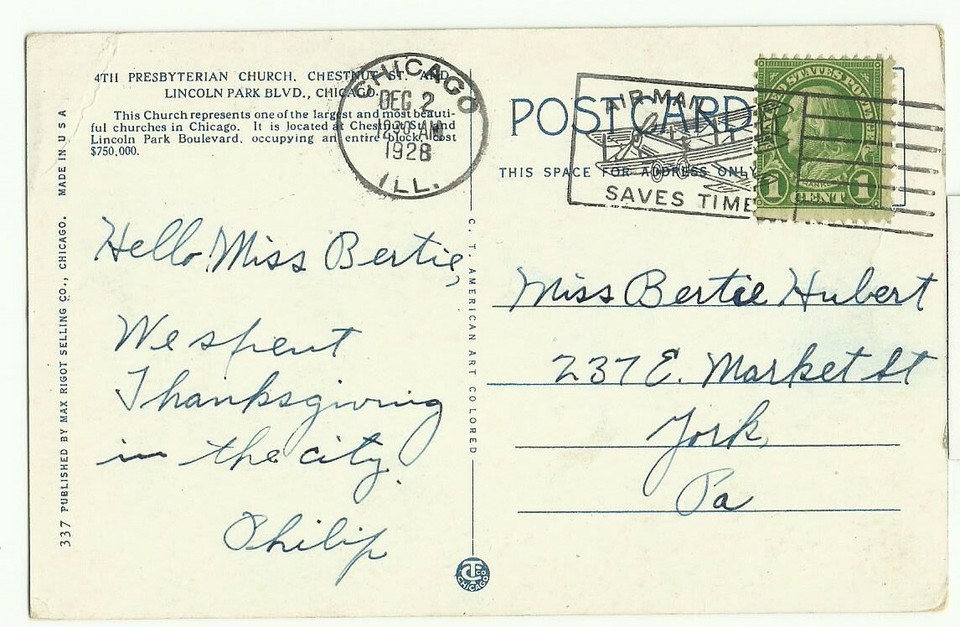 4TH PRESBYTERIAN CHURCH, CHESTNUT ST. AND
LINCOLN PARK BLVD., CHICAGO.
This Church represents one of the largest and most beauti-
ful churches in Chicago. It is located at Chestnut St. and
Lincoln Park Boulevard, occupying an entire block, cost
$750,000.
CHICAGO
DEC 2
12 30 AM
1928
ILL.
POSTCARD
THIS SPACE FOR ADDRESS ONLY
AIR MAIL
SAVES TIME
UNITED STATES POSTAGE
1 CENT 1
337 PUBLISHED BY MAX RIGOT SELLING CO., CHICAGO. MADE IN U S A
Hello Miss Bertie,
We spent
Thanksgiving
in the city.
Philip
C. T. AMERICAN ART COLORED
CHICAGO
Miss Bertie Hubert
237 E. Market St
York,
Pa